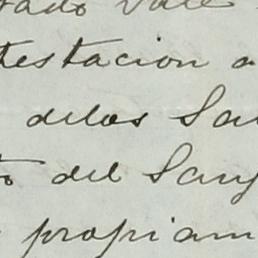 tado vale
testacion a
delos San
to del Sang
propiam